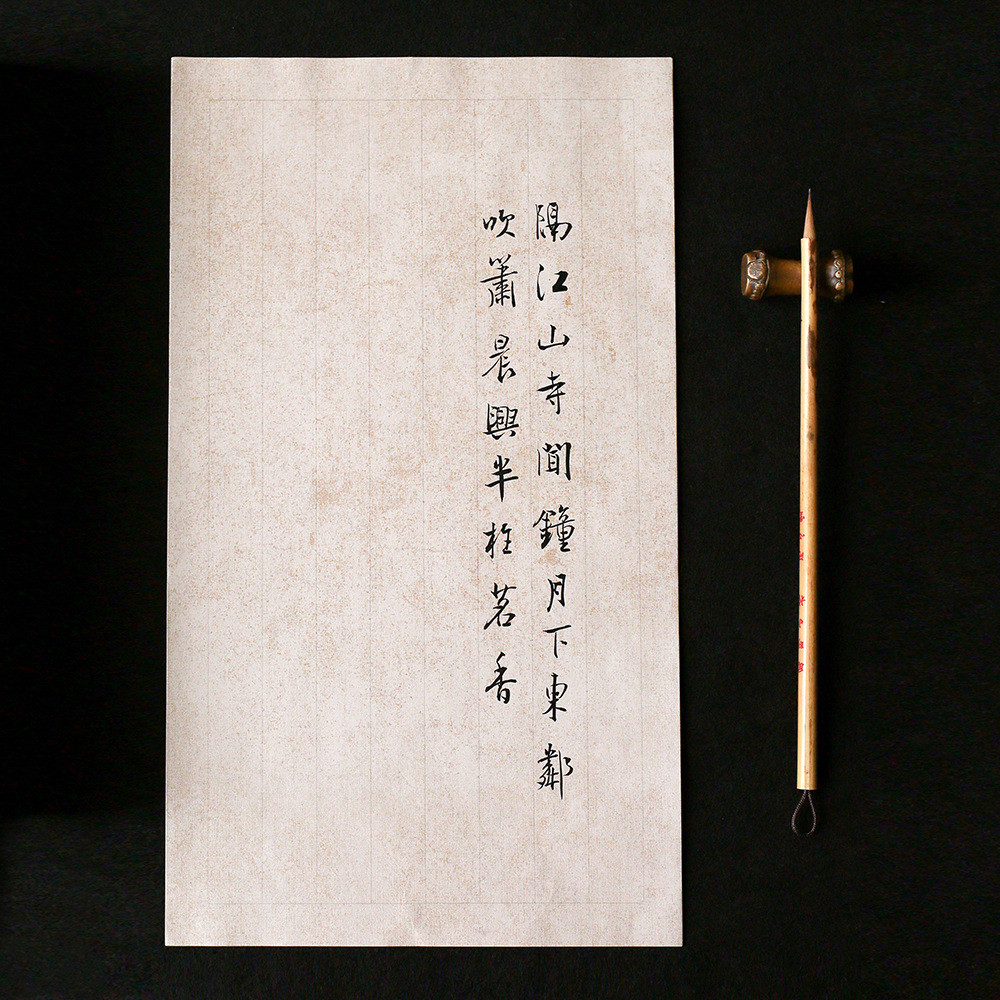 隔江山寺聞鐘月下東鄰
吹簫晨興半柱茗香